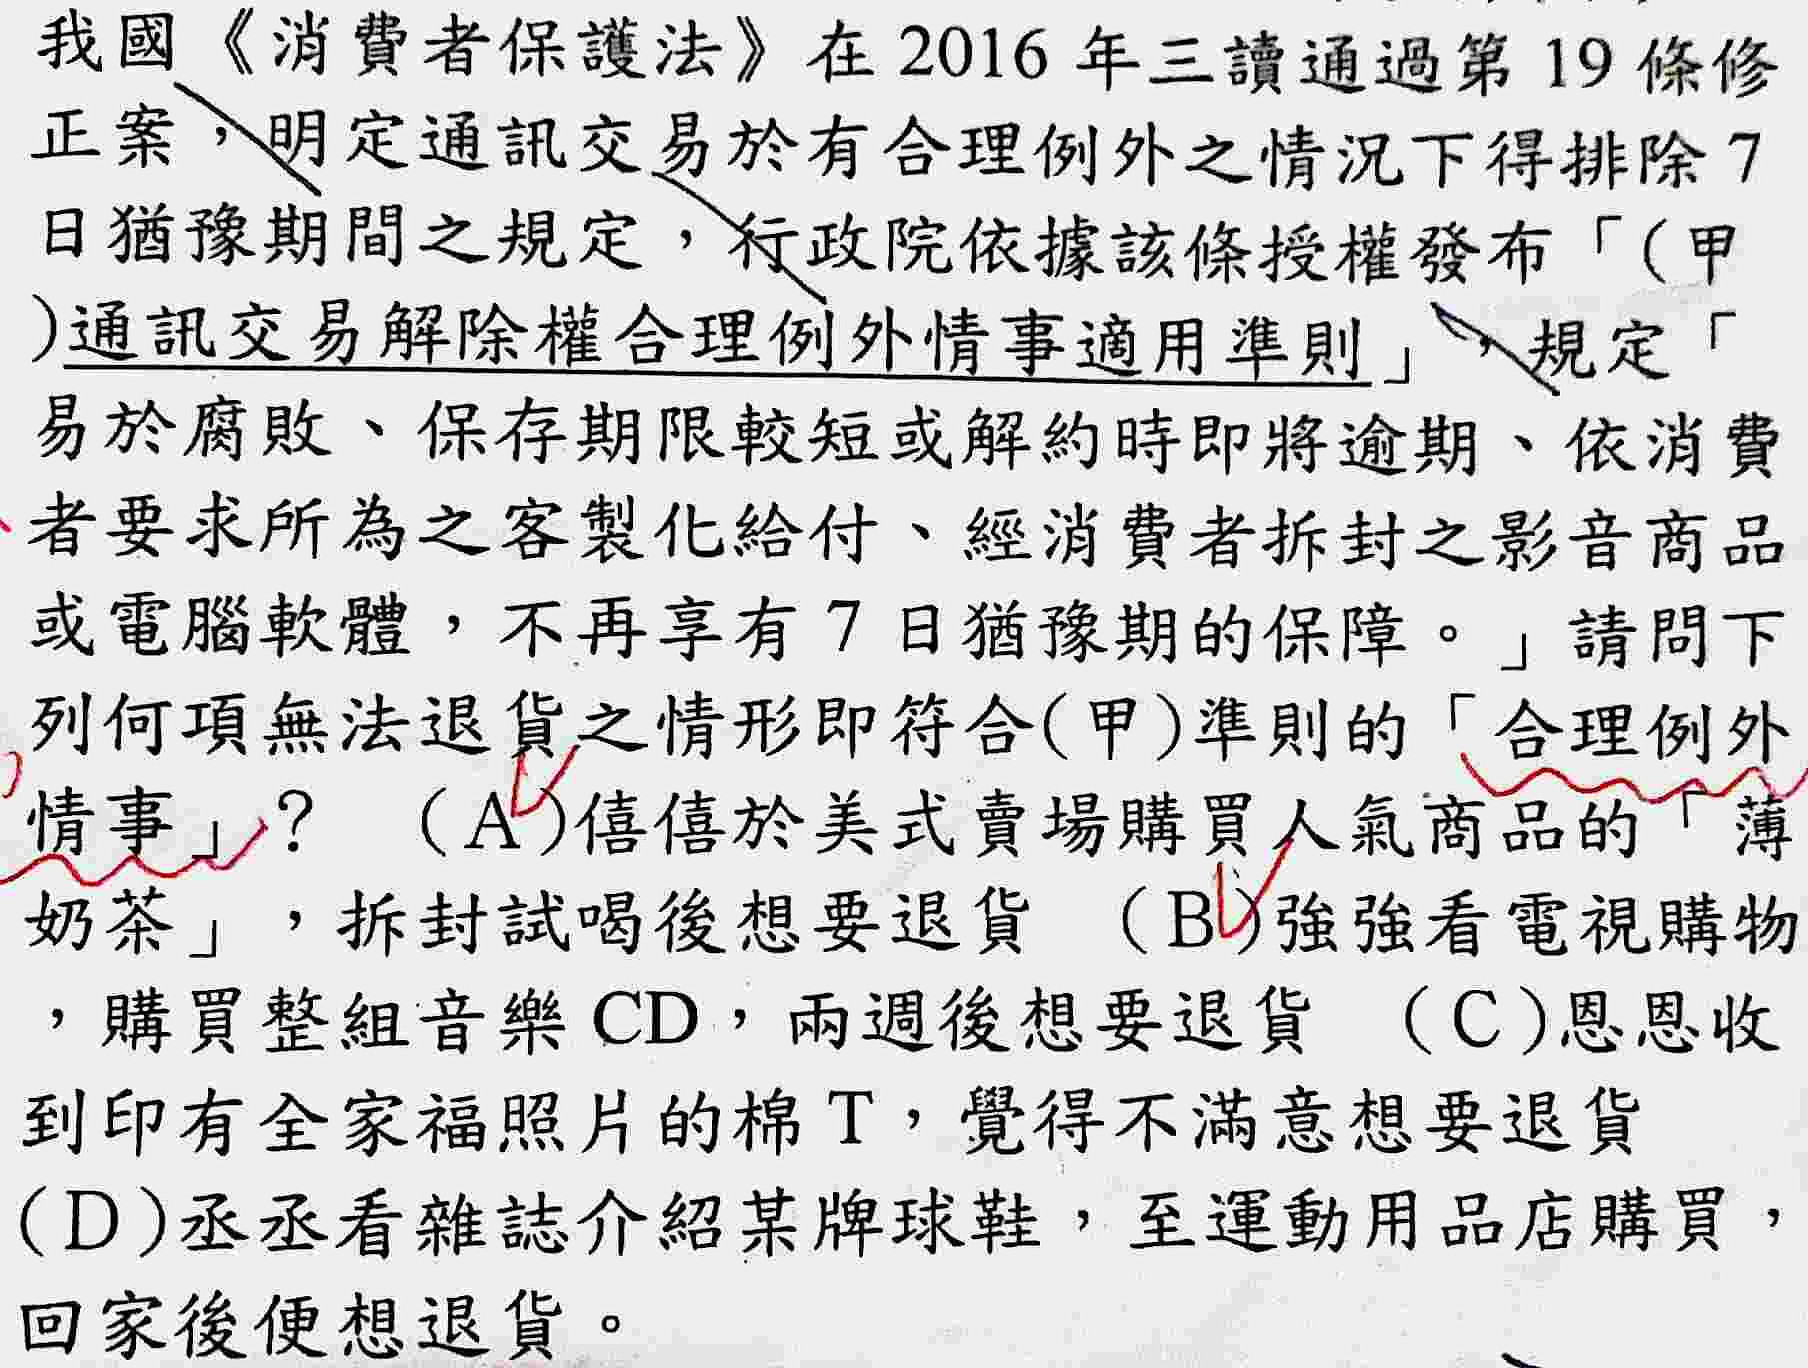 我國《消費者保護法》在 2016 年三讀通過第 19 條修
正案，明定通訊交易於有合理例外之情況下得排除 7
日猶豫期間之規定，行政院依據該條授權發布「(甲
)通訊交易解除權合理例外情事適用準則」，規定「
易於腐敗、保存期限較短或解約時即將逾期、依消費
者要求所為之客製化給付、經消費者拆封之影音商品
或電腦軟體，不再享有 7 日猶豫期的保障。」請問下
列何項無法退貨之情形即符合(甲)準則的「合理例外
情事」？ (A)僖僖於美式賣場購買人氣商品的「薄
奶茶」，拆封試喝後想要退貨 (B)強強看電視購物
，購買整組音樂 CD，兩週後想要退貨 (C)恩恩收
到印有全家福照片的棉 T，覺得不滿意想要退貨
(D)丞丞看雜誌介紹某牌球鞋，至運動用品店購買，
回家後便想退貨。